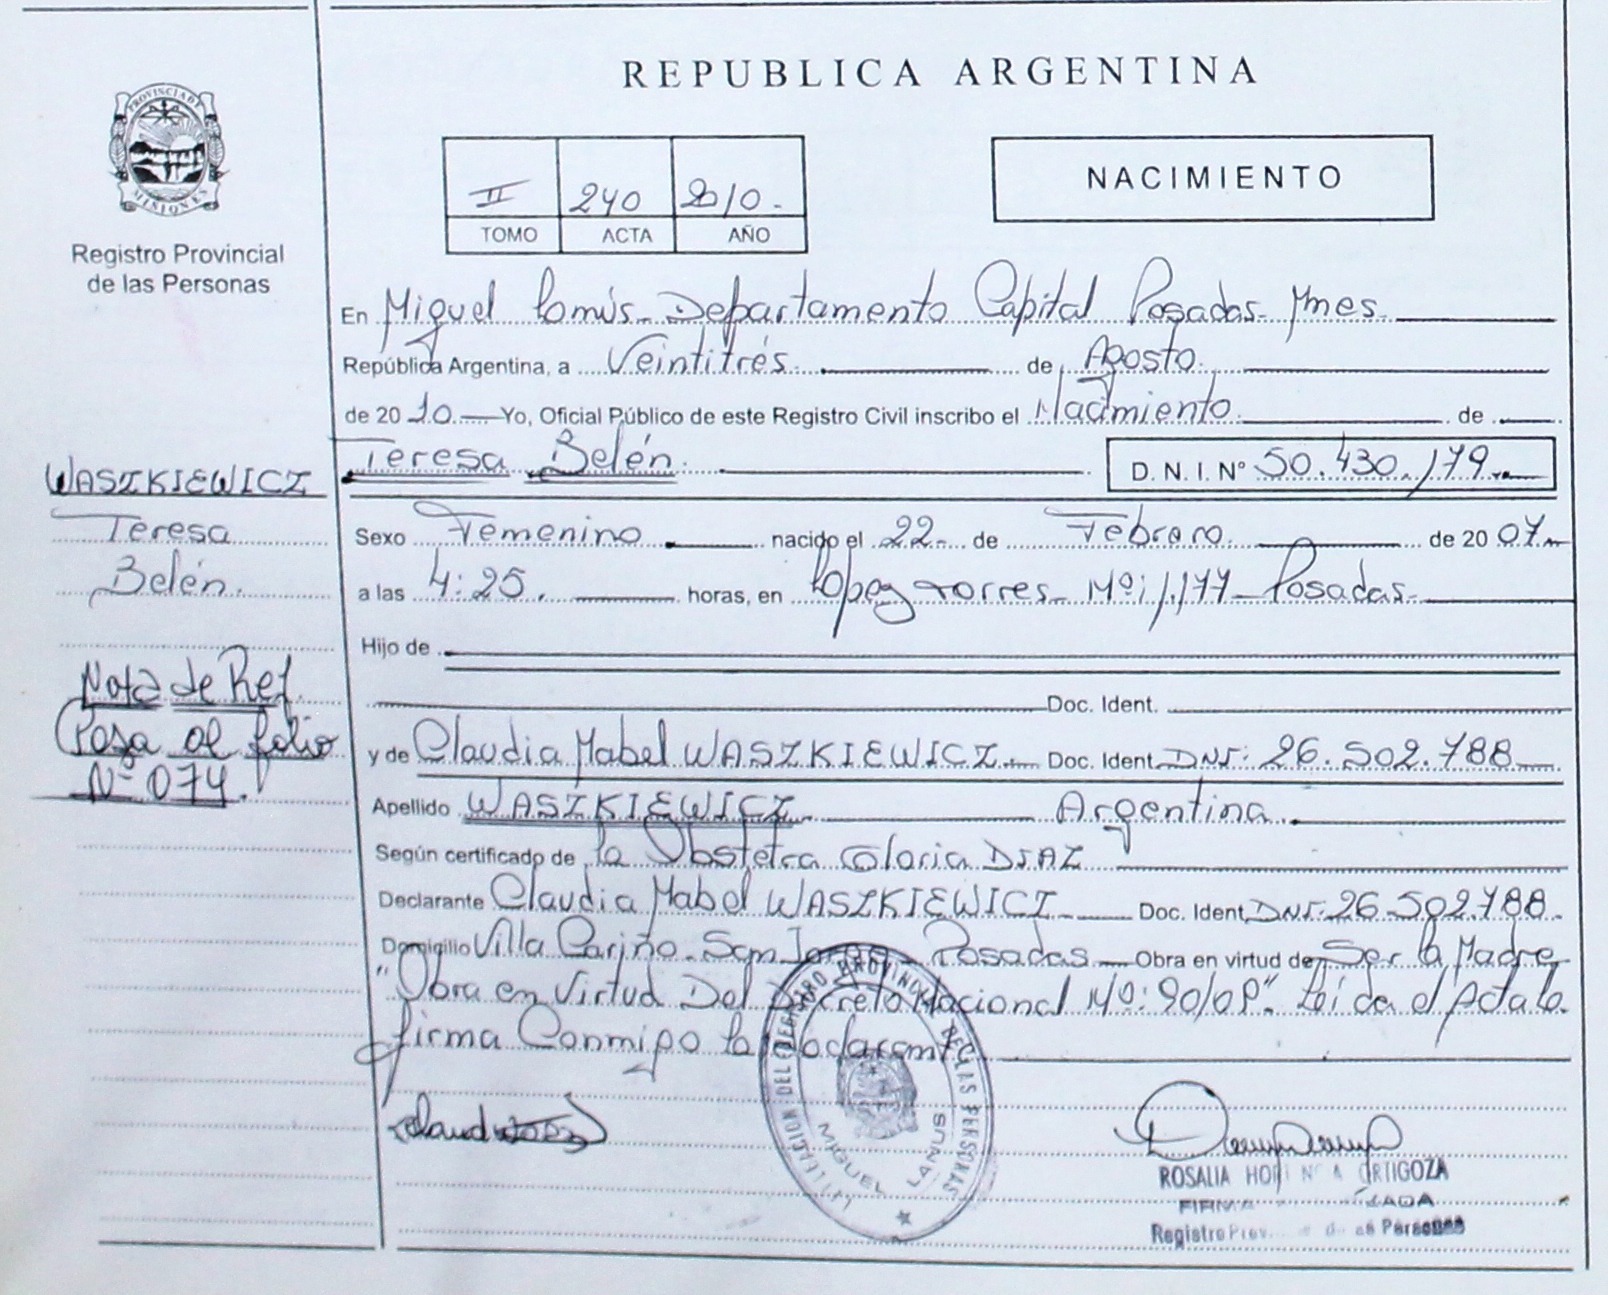 REPUBLICA ARGENTINA
PROVINCIA DE
MISIONES
Registro Provincial
de las Personas
II 240 2010.-
TOMO ACTA AÑO
NACIMIENTO
En Miguel Lanús- Departamento Capital Posadas- Mnes.
República Argentina, a Veintitrés de Agosto.
de 2010.- Yo, Oficial Público de este Registro Civil inscribo el Nacimiento. de
Teresa Belén. D. N. I. Nº 50.430.179.-
WASZKIEWICZ
Teresa
Belén.
Sexo Femenino nacido el 22- de Febrero. de 2007.-
a las 4:25. horas, en López Torres- Nº: 1.177- Posadas-
Hijo de
Doc. Ident.
Nota de Ref.
Pasa al folio
Nº 074.
y de Claudia Mabel WASZKIEWICZ.- Doc. Ident. DNI: 26.502.788-
Apellido WASZKIEWICZ Argentina.
Según certificado de la Obstetra Gloria DIAZ
Declarante Claudia Mabel WASZKIEWICZ- Doc. Ident. DNI: 26.502.788.
Domicilio Villa Cariño- San Jorge- Posadas- Obra en virtud de Ser la Madre
"Obra en Virtud Del Decreto Nacional Nº: 90/09". Leída el Acta la
firma Conmigo la declarante
DEL REGISTRO PROVINCIAL DE LAS PERSONAS
MIGUEL LANUS
ROSALIA ORTIGOZA
FIRMA
Registro Personas